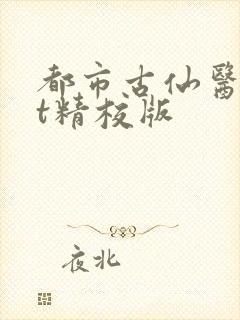 都市古仙醫
t精校版
夜北